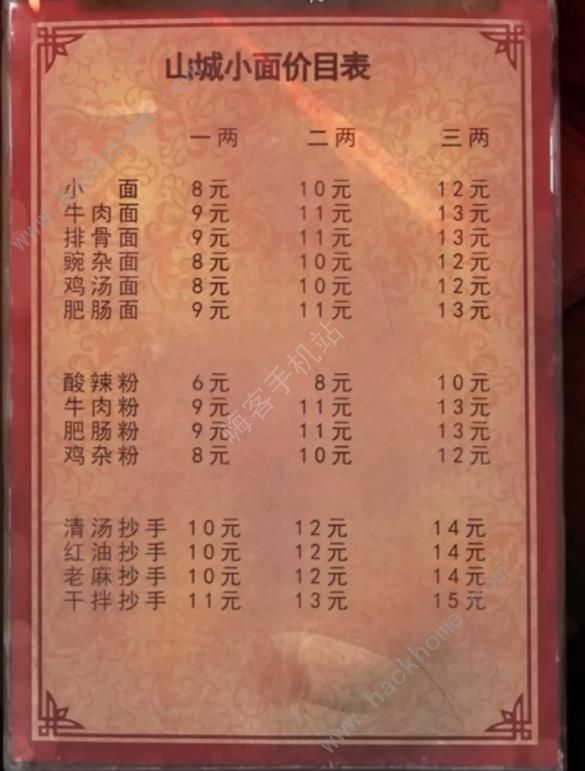 山城小面价目表
一两 二两 三两
小面 8元 10元 12元
牛肉面 9元 11元 13元
排骨面 9元 11元 13元
豌杂面 8元 10元 12元
鸡汤面 8元 10元 12元
肥肠面 9元 11元 13元
酸辣粉 6元 8元 10元
牛肉粉 9元 11元 13元
肥肠粉 9元 11元 13元
鸡杂粉 8元 10元 12元
清汤抄手 10元 12元 14元
红油抄手 10元 12元 14元
老麻抄手 10元 12元 14元
干拌抄手 11元 13元 15元
www.hackhome.com
嗨客手机站
www.hackhome.com